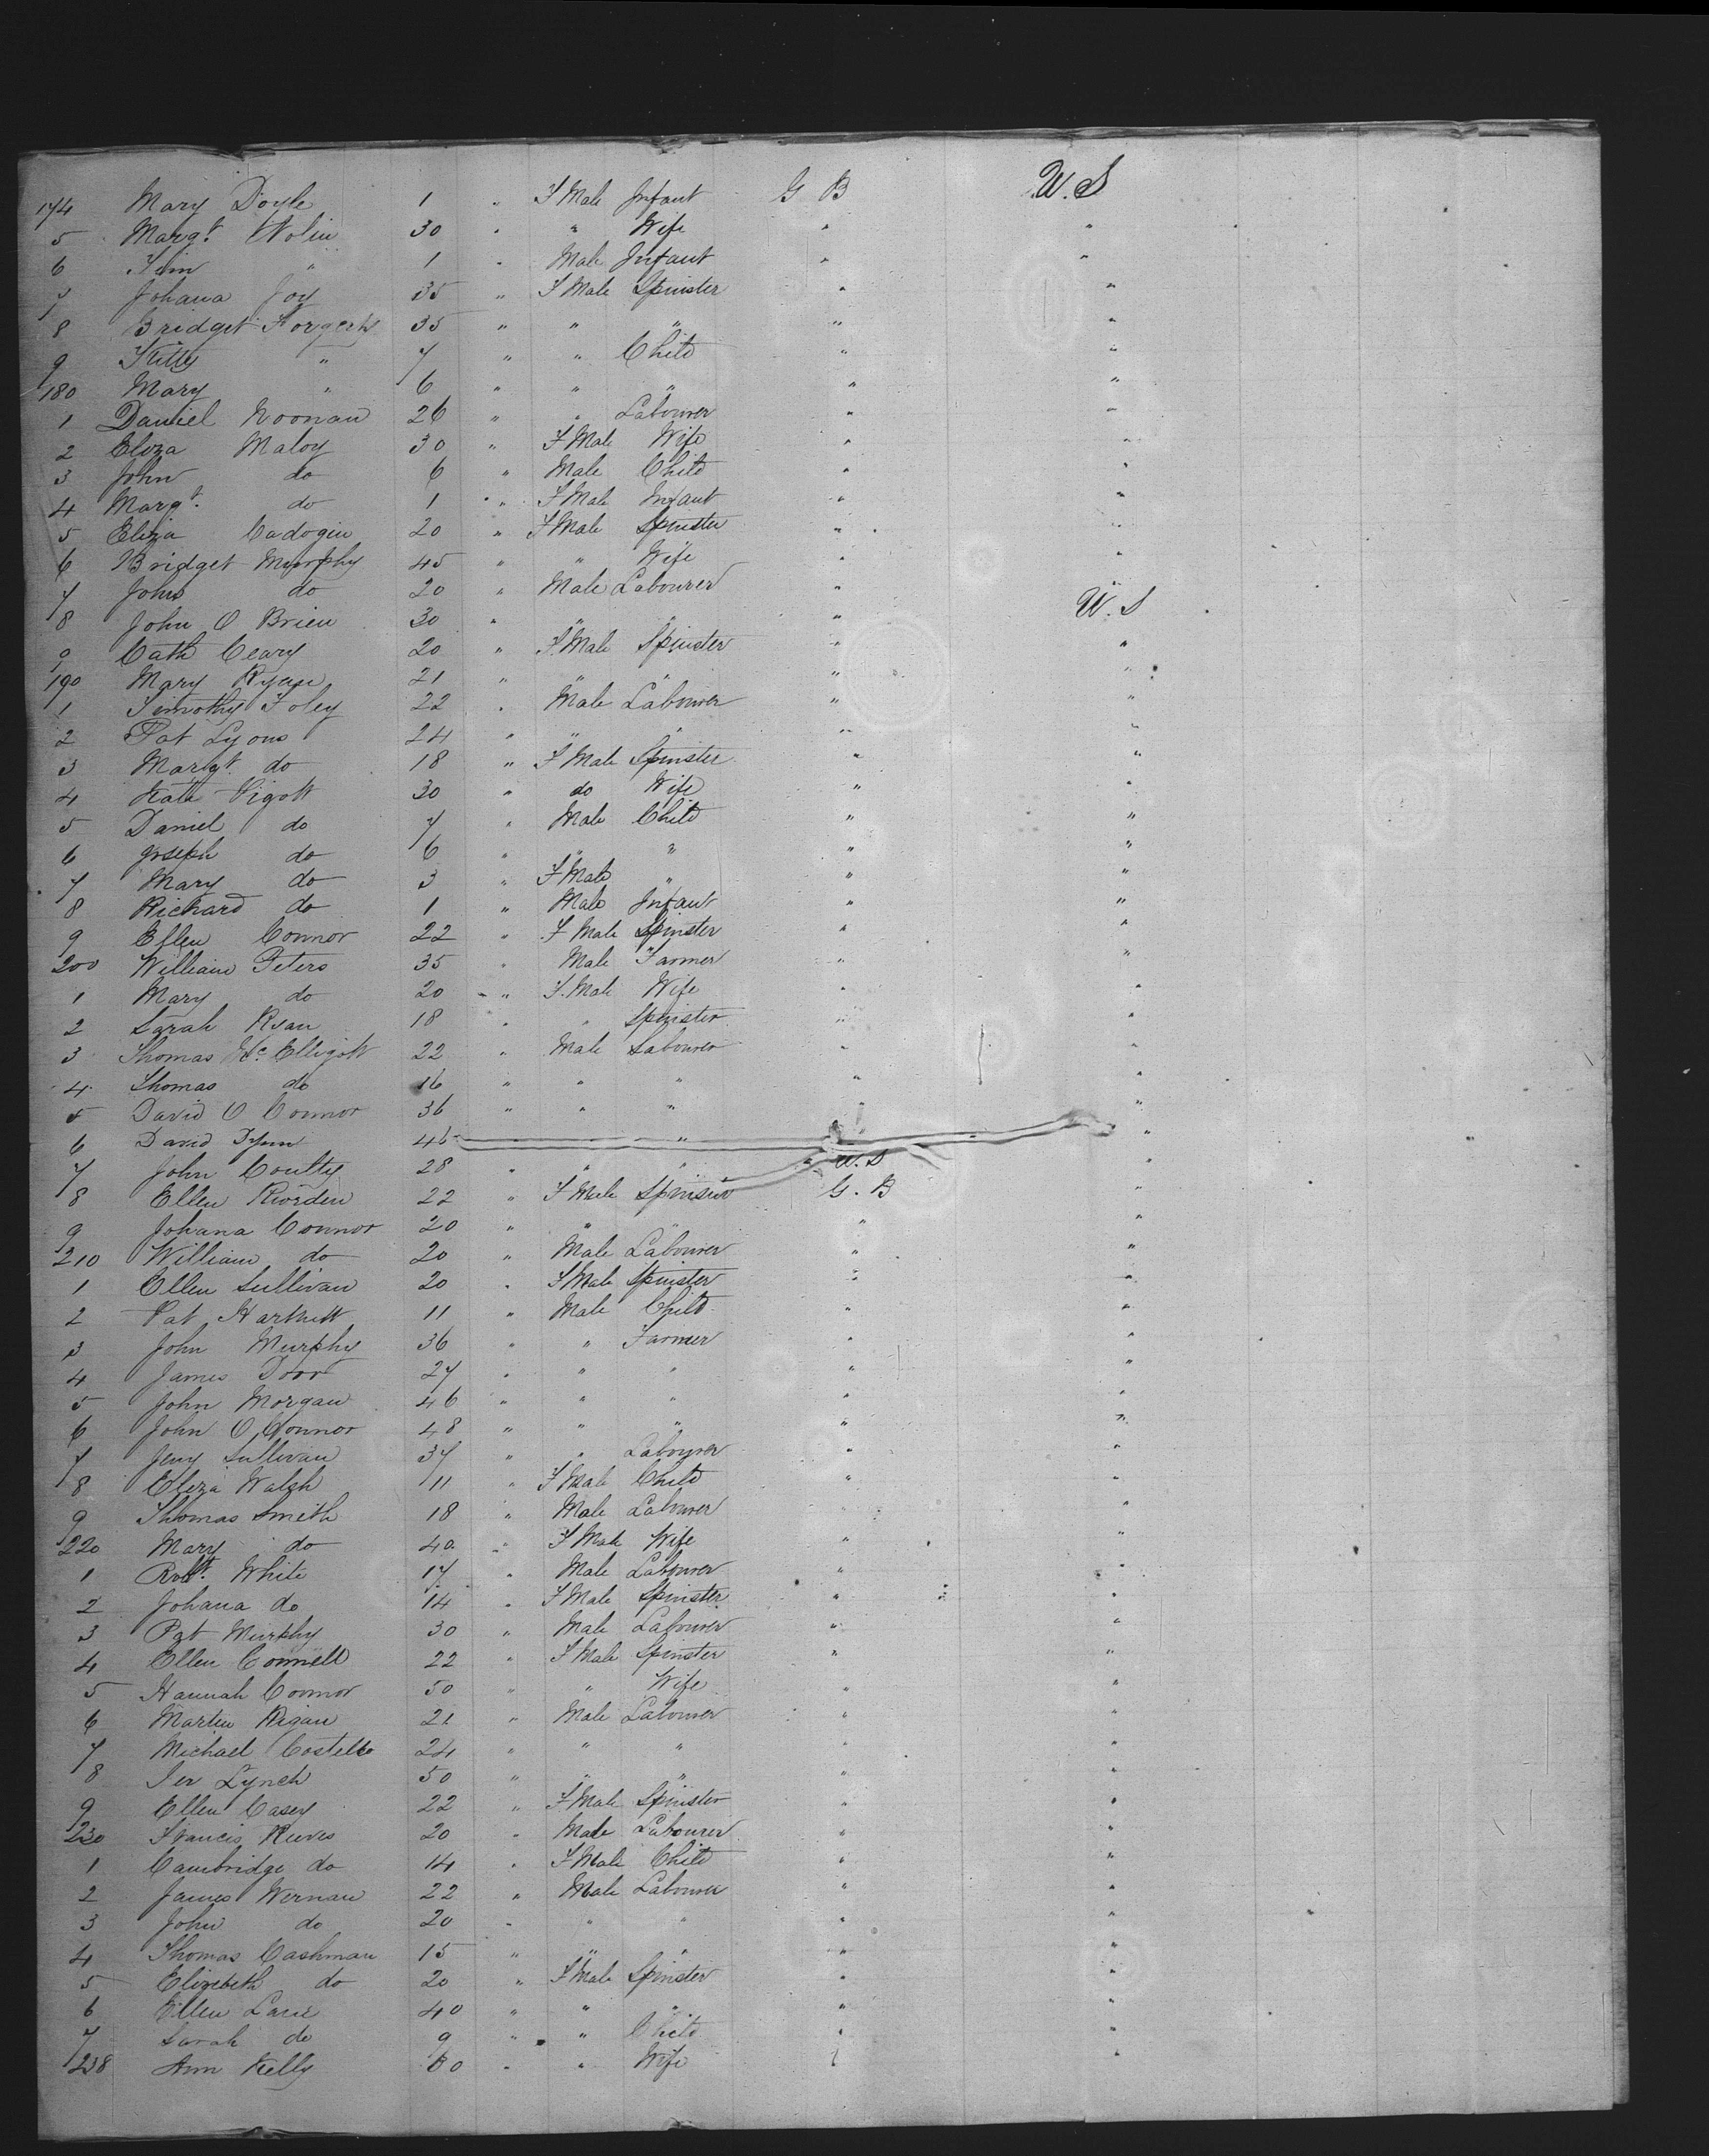 174 Mary Doyle 1 " F Male Infant G B U.S
5 Margt. Nolin 30 " " Wife " "
6 Tim " 1 " Male Infant " "
7 Johana Joy 35 " F Male Spinster " "
8 Bridget 35 " " " " "
9 Kitty " 7 " " Child " "
180 Mary " 6 " " " " "
1 Daniel Noonan 26 " " Labourer " "
2 Eliza Maloy 30 " F Male Wife " "
3 John do 6 " Male Child " "
4 Margt. do 1 " F Male Infant " "
5 Eliza Cadogin 20 " F Male Spinster " "
6 Bridget Murphy 45 " " Wife " "
7 John do 20 " Male Labourer "
8 John O Brien 30 " " " " U.S
9 Cath Ceary 20 " F Male Spinster " "
190 Mary Ryan 21 " " " " "
1 Timothy Foley 22 " Male Labourer " "
2 Pat Lyons 24 " " " " "
3 Margt. do 18 " F Male Spinster " "
4 Kate Pigott 30 " do Wife " "
5 Daniel do 7 " Male Child " "
6 Joseph do 6 " " " " "
7 Mary do 3 " F Male " " "
8 Richard do 1 " Male Infant " "
9 Ellen Connor 22 " F Male Spinster " "
200 William Peters 35 " Male Farmer " "
1 Mary do 20 " F. Male Wife " "
2 Sarah Ryan 18 " " Spinster " "
3 Thomas Mc Elligott 22 " Male Labourer " "
4 Thomas do 16 " " " " "
5 David O Connor 36 " " " " "
6 David 46 " " "
7 John Coulty 28 " " " U.S "
8 Ellen Riorden 22 " F Male Spinster G. B "
9 Johana Connor 20 " " " " "
210 William do 20 " Male Labourer " "
1 Ellen Sullivan 20 " F Male Spinster " "
2 Pat Harthett 11 " Male Child " "
3 John Murphy 36 " " Farmer " "
4 James 27 " " " " "
5 John Morgan 46 " " " " "
6 John O Connor 48 " " " " "
7 Jerry Sullivan 37 " " Labourer " "
8 Eliza Walsh 11 " F Male Child " "
9 Thomas Smith 18 " Male Labourer " "
220 Mary do 40 " F Male Wife " "
1 Robt. White 17 " Male Labourer " "
2 Johana do 14 " F Male Spinster " "
3 Pat Murphy 30 " Male Labourer " "
4 Ellen Connell 22 " F Male Spinster " "
5 Hannah Connor 50 " " Wife " "
6 Martin Rigan 21 " Male Labourer " "
7 Michael Costello 24 " " " " "
8 Jer Lynch 50 " " " " "
9 Ellen Casey 22 " F Male Spinster " "
230 Francis Reeves 20 " Male Labourer " "
1 Cambridge do 14 " F Male Child " "
2 James Wernan 22 " Male Labourer " "
3 John do 20 " " " " "
4 Thomas Cashman 15 " " " " "
5 Elizebeth do 20 " F Male Spinster " "
6 Ellen Lane 40 " " " " "
7 Sarah do 9 " " Child " "
238 Ann Kelly 60 " " Wife " "